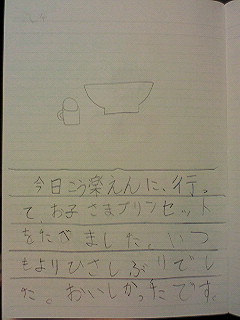 今日こう楽えんに、行っ
て、お子さまプリンセット
をたべました。いつ
もよりひさしぶりでし
た。おいしかったです。